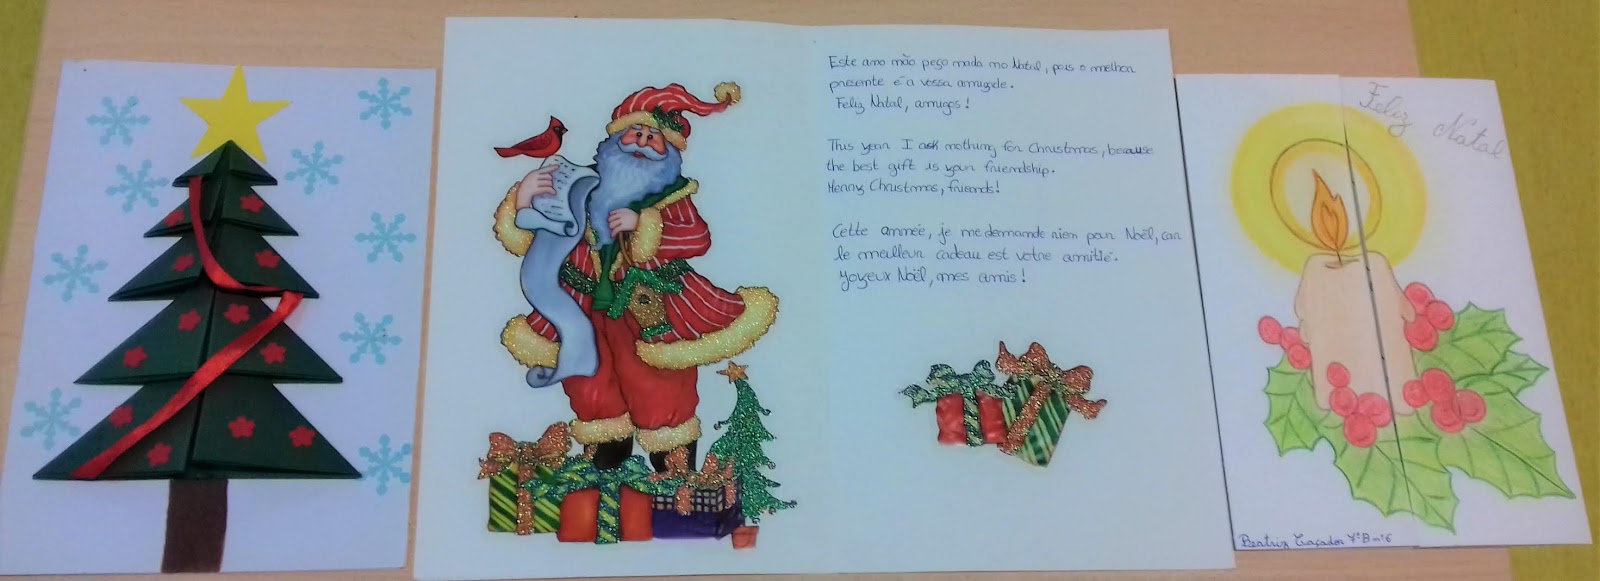 Este ano não peço nada no Natal, pois o melhor
presente é a vossa amizade.
Feliz Natal, amigos!
This year I ask nothing for Christmas, because
the best gift is your friendship.
Merry Christmas, friends!
Cette année, je me demande rien pour Noël, car
le meilleur cadeau est votre amitié.
Joyeux Noël, mes amis!
Feliz Natal
Beatriz Caçador 7ºB nº6